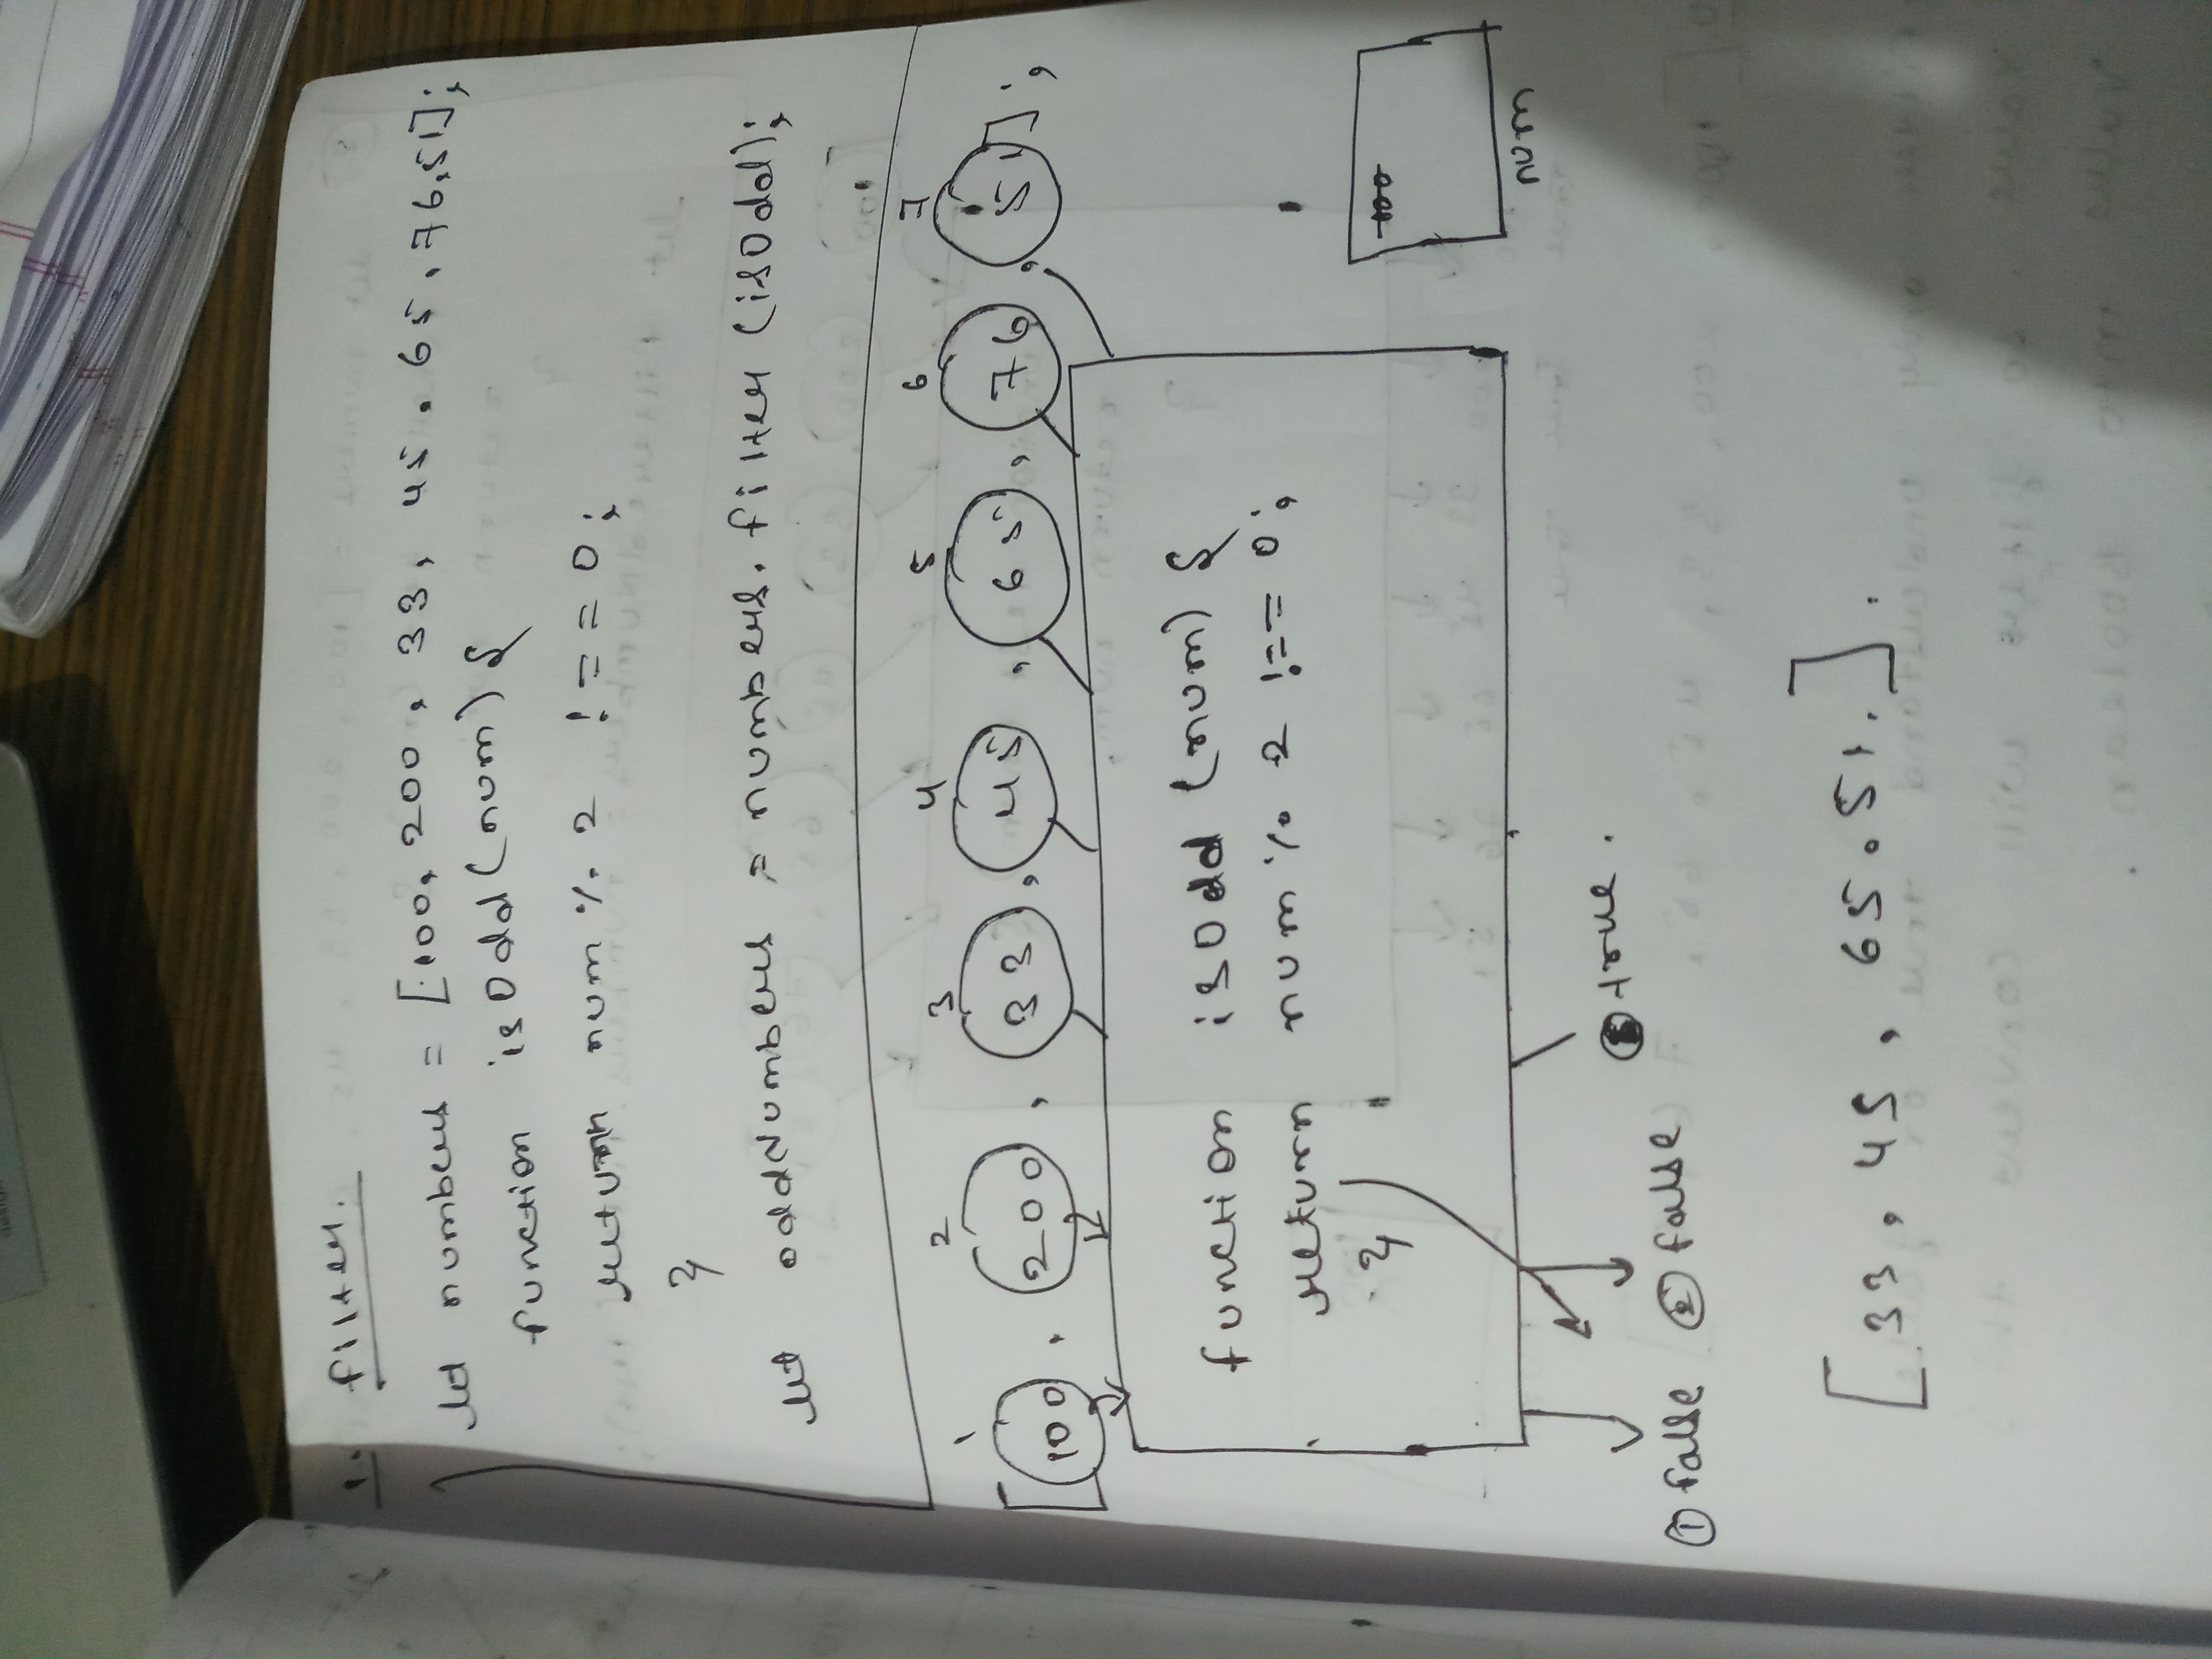 design
1. filter.
let numbers = [100, 200, 33, 45, 65, 76, 51];
function isOdd(num) {
return num % 2 !== 0;
}
let oddNumbers = numbers.filter(isOdd);
1 2 3 4 5 6 7
[100, 200, 33, 45, 65, 76, 51];
function isOdd (num) {
return num % 2 !== 0;
}
100
num
① false ② false true.
[33, 45, 65, 51.].